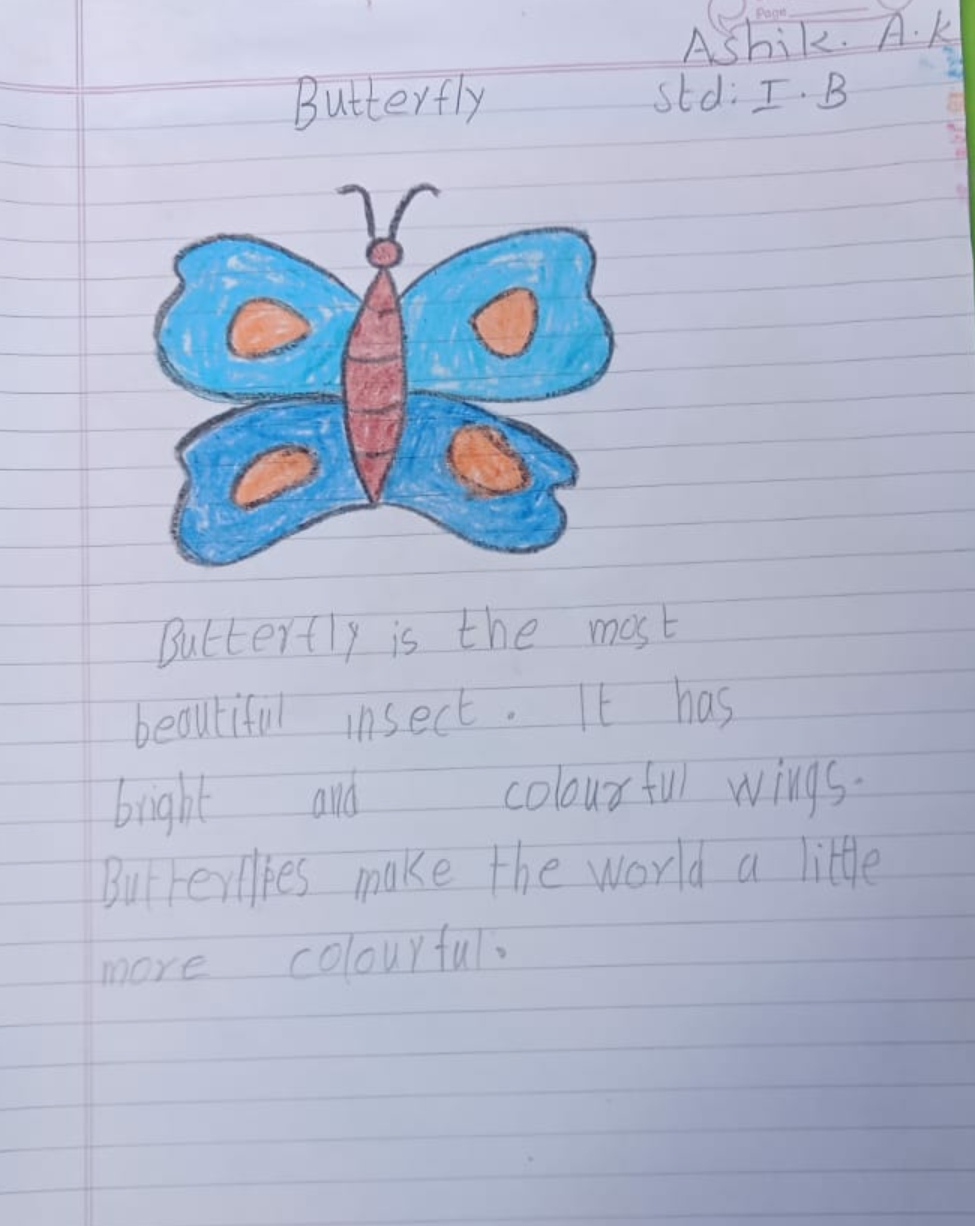 Page
Ashik. A.K
Butterfly
Std: I. B
Butterfly is the most
beautiful insect. It has
bright and colourful wings.
Butterflies make the world a little
more colourful.